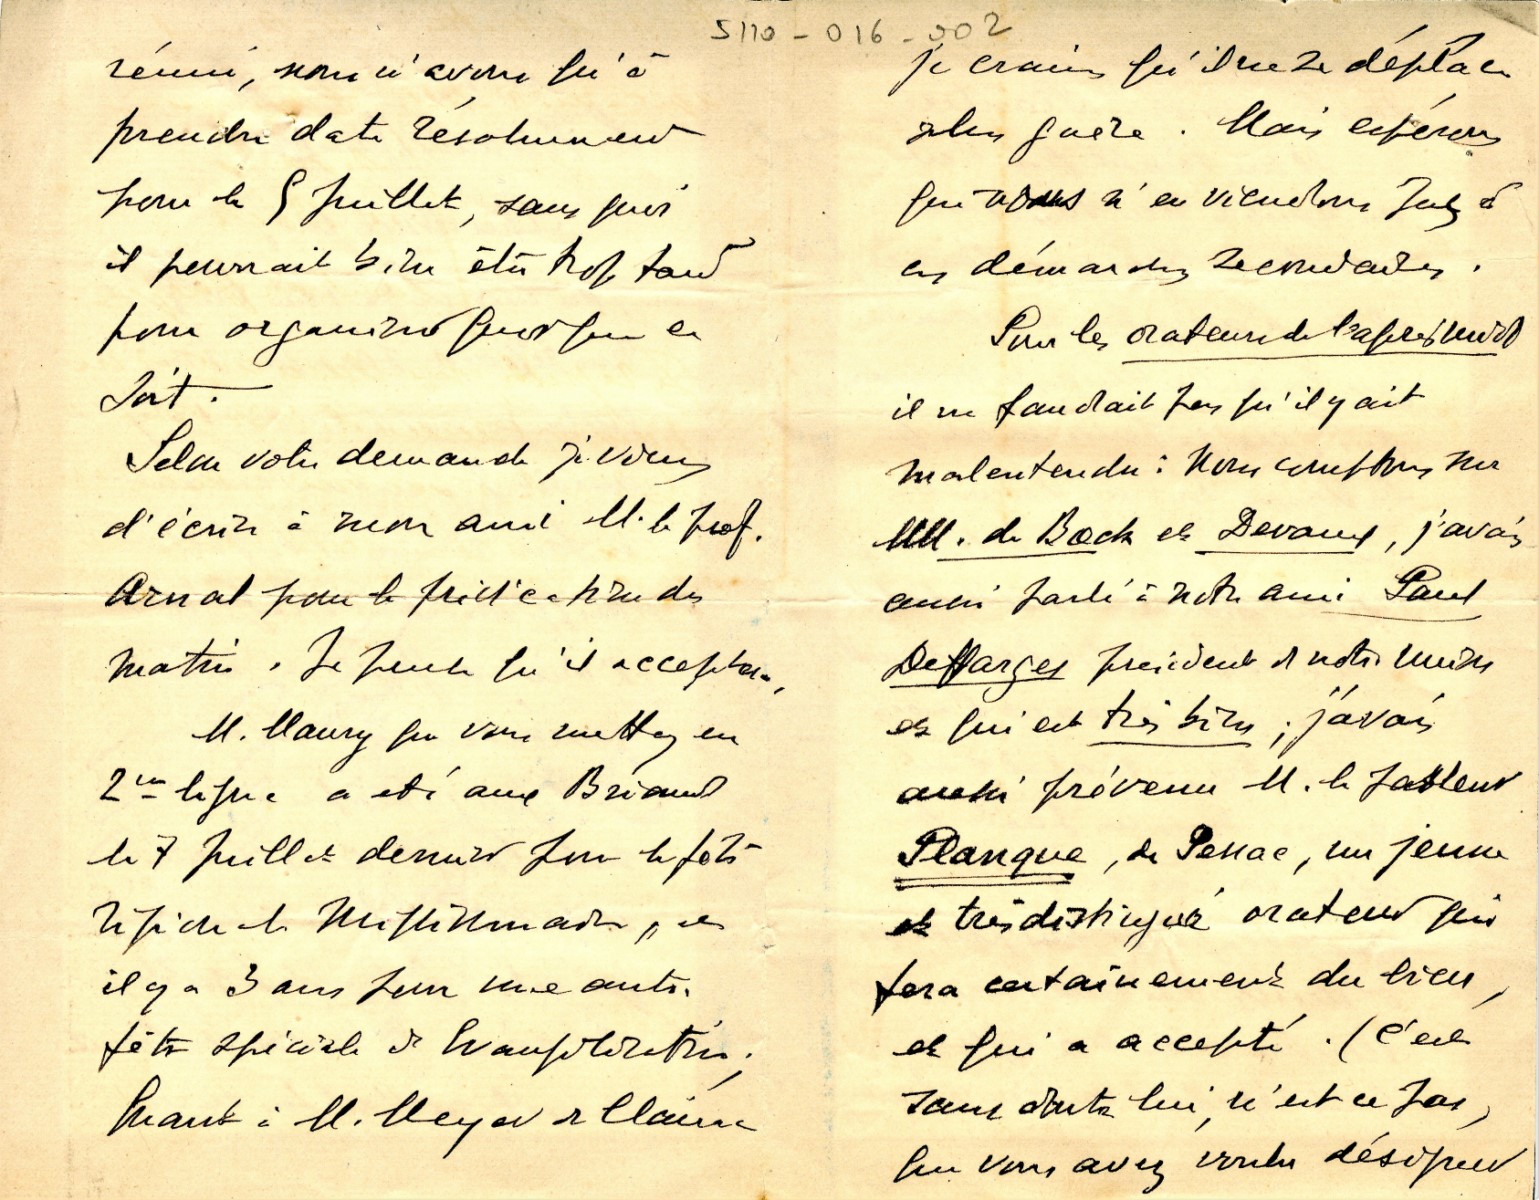 5110-016-002
réuni, nous n'avons qu'à
prendre date résolument
pour le 5 Juillet, sans quoi
il pourrait bien être trop tard
pour organiser quoi que ce
soit.
Selon votre demande je viens
d'écrire à mon ami M. le prof.
Arnal pour la prédication du
matin. Je pense qu'il acceptera,
M. Maury que vous mettez en
2me ligne a été aux Briands
le 7 Juillet dernier pour la fête
missionnaire, et
il y a 3 ans pour une autre
fête spéciale d'Evangélisation;
Quant à M. Meyer de
je crains qu'il ne se déplace
plus guère. Mais espérons
que nous n'en viendrons pas à
ces démarches secondaires.
Pour les orateurs de l'après midi
il ne faudrait pas qu'il y ait
malentendu: Nous comptons sur
MM. de Boeck et Devaux, j'avais
aussi parlé à notre ami Paul
Deffarges président de notre Union
et qui est très bien; j'avais
aussi prévenu M. le pasteur
Planque, de Pessac, un jeune
et très distingué orateur qui
fera certainement du bien,
et qui a accepté. (C'est
sans doute lui, n'est ce pas,
que vous avez voulu désigner